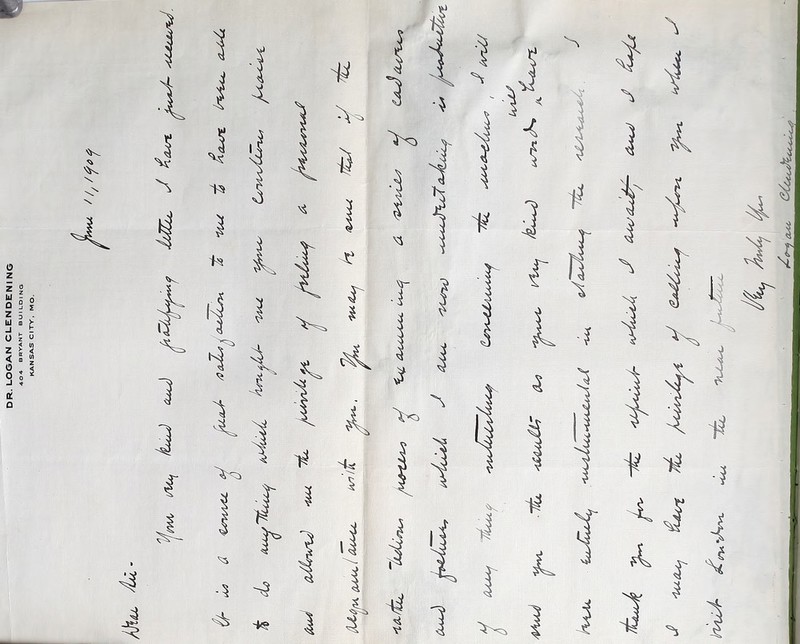 DR. LOGAN CLENDENING
404 BRYANT BUILDING
KANSAS CITY, MO.
June 11, 1909
Dear Sir -
Your very kind and gratifying letter I have just received.
It is a source of great satisfaction to me to have been able
to do anything which brought me your courteous praise
and allowed me the privilege of feeling a personal
acquaintance with you. You may be sure that if the
rather tedious process of examining a series of cadavers
and foetuses which I am now undertaking is productive
of any thing interesting concerning the matter, I will
send you the results as your very kind words will have
been entirely instrumental in starting the research. I
thank you for the reprint which I await, and I hope
I may have the privilege of calling upon you when I
visit London in the near future
Very Truly Yours
Logan Clendening